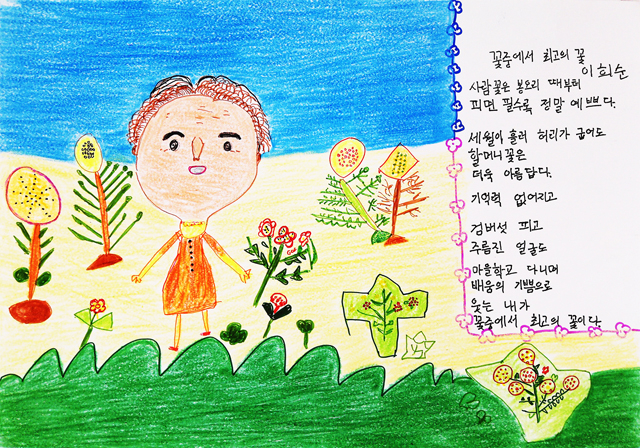 꽃중에서 최고의 꽃
이희순
사람꽃은 봉오리 때부터
피면 필수록 정말 예쁘다.
세월이 흘러 허리가 굽어도
할머니꽃은
더욱 아름답다.
기억력 없어지고
검버섯 피고
주름진 얼굴도
마을학교 다니며
배움의 기쁨으로
웃는 내가
꽃중에서 최고의 꽃이다